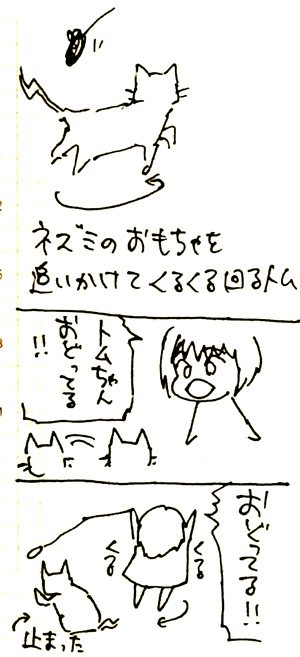 ネズミのおもちゃを
追いかけてくるくる回るトム
トムちゃん
おどってる
!!
おどってる!!
くる
くる
止まった